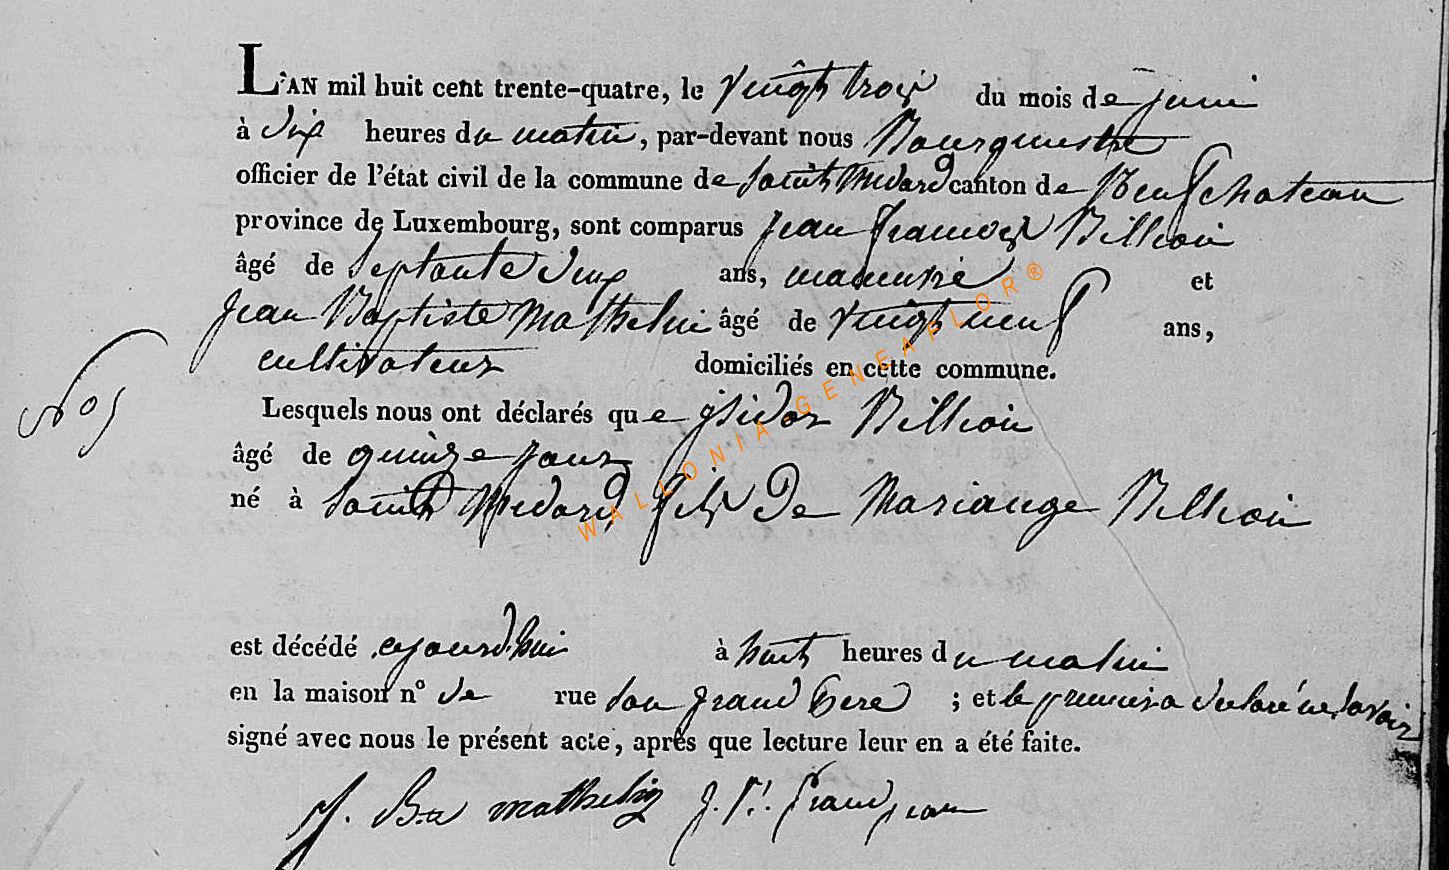 L'AN mil huit cent trente-quatre, le vingt trois du mois de juin
à dix heures du matin, par-devant nous Bourgmestre
officier de l'état civil de la commune de Saint Medard canton de Neufchateau
province de Luxembourg, sont comparus Jean francois Billion
âgé de Septante deux ans, manuvre et
Jean Baptiste Mathelin âgé de vingt neuf ans,
cultivateur domiciliés en cette commune.
Lesquels nous ont déclarés que isidor Billion
âgé de quinze jours
né à Saint Medard fils de Mariange Billion
est décédé ajourd'hui à huit heures du matin
en la maison n° de rue son grand Pere ; et le premier a declaré ne savoir
signé avec nous le présent acte, après que lecture leur en a été faite.
J. Bte mathelin J. Grandjean
WALLONIA GENEAFLOR®